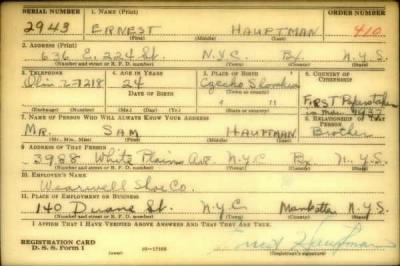 SERIAL NUMBER 1. NAME (Print) ORDER NUMBER
2943 ERNEST HAUPTMAN 410
(First) (Middle) (Last)
2. ADDRESS (Print)
636 E. 224 St. N.Y.C. Bx. N.Y.S.
(Number and street or R. F. D. number) (Town) (County) (State)
3. TELEPHONE 4. AGE IN YEARS 5. PLACE OF BIRTH 6. COUNTRY OF CITIZENSHIP
Olin. 2-7218 24 Czecho Slovakia
DATE OF BIRTH (Town or county) FIRST Papers taken
in Mar. 1937
(Exchange) (Number) (Mo.) (Day) (Yr.) (State or country)
7. NAME OF PERSON WHO WILL ALWAYS KNOW YOUR ADDRESS 8. RELATIONSHIP OF THAT PERSON
MR. SAM HAUPTMAN Brother
(Mr., Mrs., Miss) (First) (Middle) (Last)
9. ADDRESS OF THAT PERSON
3988 White Plains Ave. N.Y.C Bx. N.Y.S.
(Number and street or R. F. D. number) (Town) (County) (State)
10. EMPLOYER'S NAME
Wearwell Shoe Co.
11. PLACE OF EMPLOYMENT OR BUSINESS
140 Duane St. N.Y.C Manhattan N.Y.S.
(Number and street or R. F. D. number) (Town) (County) (State)
I AFFIRM THAT I HAVE VERIFIED ABOVE ANSWERS AND THAT THEY ARE TRUE.
REGISTRATION CARD
D. S. S. Form 1 Ernest Hauptman
(over) (Registrant's signature)